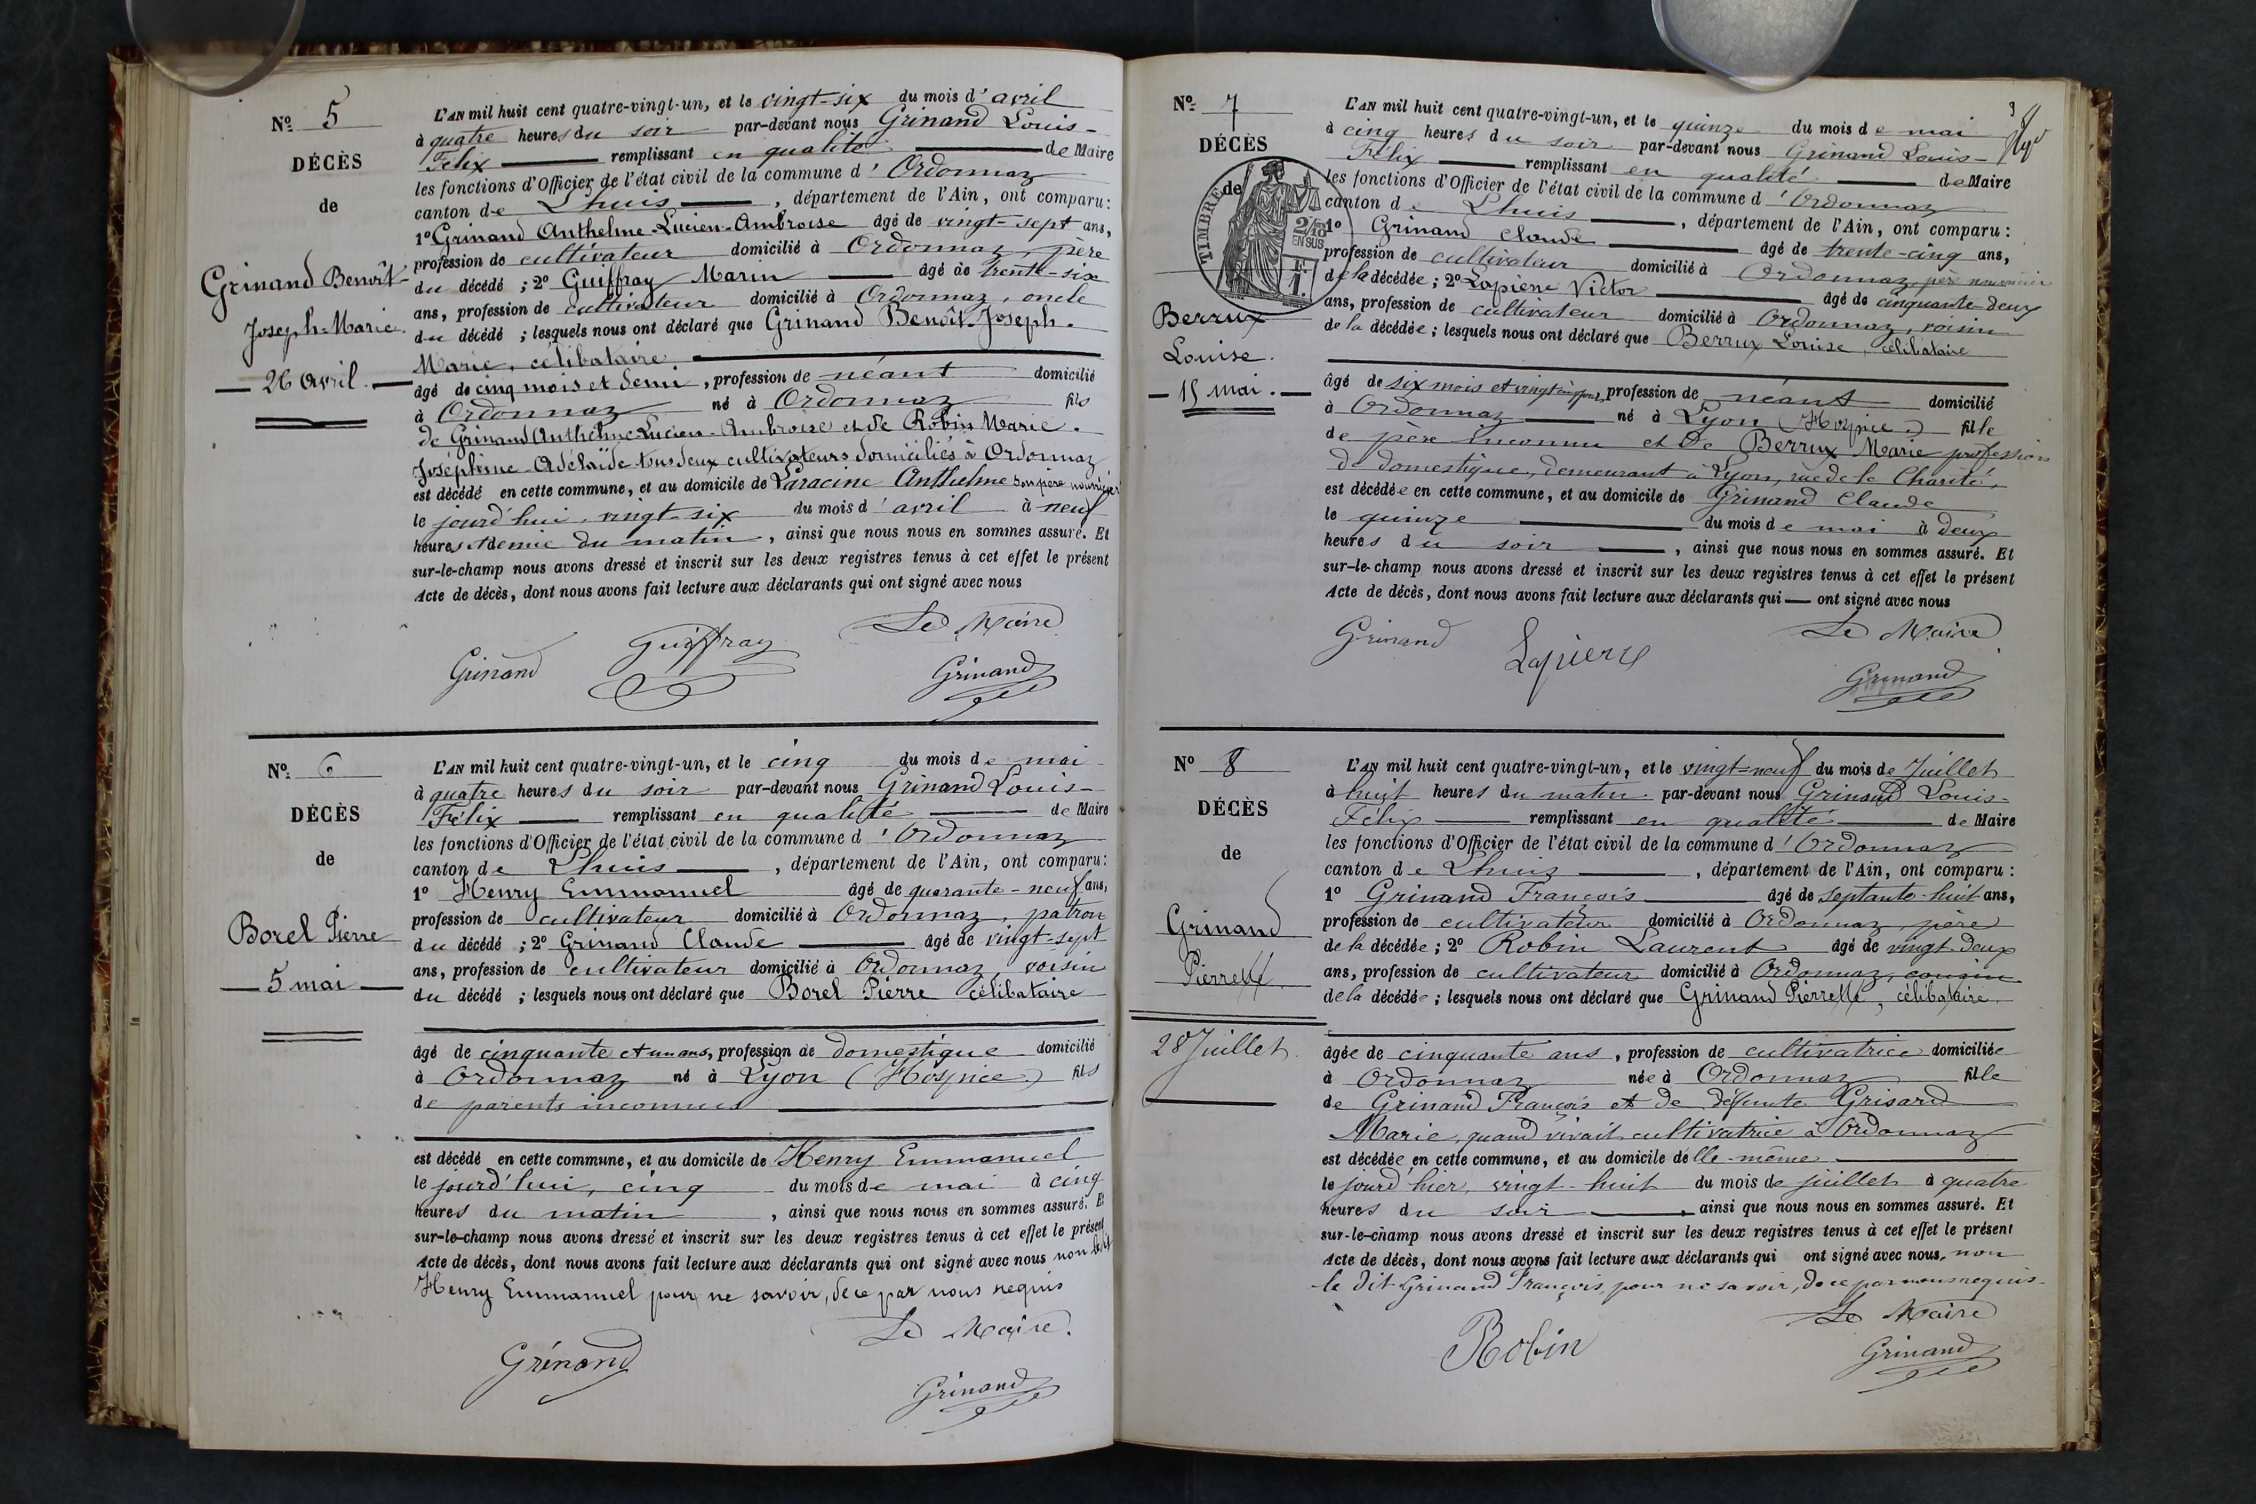 Nº 5
DÉCÈS
de
Grinand Benoît-
Joseph-Marie.
26 avril.
L'AN mil huit cent quatre-vingt-un, et le vingt-six du mois d'avril
à quatre heures du soir par-devant nous Grinand Louis-
Félix remplissant en qualité de Maire
les fonctions d'Officier de l'état civil de la commune d'Ordonnaz
canton de Lhuis, département de l'Ain, ont comparu:
1º Grinand Anthelme-Lucien-Ambroise âgé de vingt-sept ans,
profession de cultivateur domicilié à Ordonnaz, père
du décédé ; 2º Guiffray Marin âgé de trente-six
ans, profession de cultivateur domicilié à Ordonnaz, oncle
du décédé ; lesquels nous ont déclaré que Grinand Benoît-Joseph-
Marie, célibataire
âgé de cinq mois et demi, profession de néant domicilié
à Ordonnaz né à Ordonnaz fils
de Grinand Anthelme-Lucien-Ambroise et de Robin Marie-
Joséphine-Adélaïde tous deux cultivateurs domiciliés à Ordonnaz
est décédé en cette commune, et au domicile de Laracine Anthelme son père nourricier
le jourd'hui, vingt-six du mois d'avril à neuf
heures et demie du matin, ainsi que nous nous en sommes assuré. Et
sur-le-champ nous avons dressé et inscrit sur les deux registres tenus à cet effet le présent
Acte de décès, dont nous avons fait lecture aux déclarants qui ont signé avec nous
Le Maire
Grinand Guiffray Grinand
Nº 6
DÉCÈS
de
Borel Pierre
5 mai
L'AN mil huit cent quatre-vingt-un, et le cinq du mois de mai
à quatre heures du soir par-devant nous Grinand Louis-
Félix remplissant en qualité de Maire
les fonctions d'Officier de l'état civil de la commune d'Ordonnaz
canton de Lhuis, département de l'Ain, ont comparu:
1º Henry Emmanuel âgé de quarante-neuf ans,
profession de cultivateur domicilié à Ordonnaz, patron
du décédé ; 2º Grinand Claude âgé de vingt-sept
ans, profession de cultivateur domicilié à Ordonnaz, voisin
du décédé ; lesquels nous ont déclaré que Borel Pierre célibataire
âgé de cinquante et un ans, profession de domestique domicilié
à Ordonnaz né à Lyon (Hospice) fils
de parents inconnus
est décédé en cette commune, et au domicile de Henry Emmanuel
le jourd'hui, cinq du mois de mai à cinq
heures du matin, ainsi que nous nous en sommes assuré. Et
sur-le-champ nous avons dressé et inscrit sur les deux registres tenus à cet effet le présent
Acte de décès, dont nous avons fait lecture aux déclarants qui ont signé avec nous non le dit
Henry Emmanuel pour ne savoir, de ce par nous requis
Le Maire.
Grinand
Grinand
3
Nº 7
DÉCÈS
de
TIMBRE
2/10
EN SUS
1
Berrux
Louise.
15 mai.
L'AN mil huit cent quatre-vingt-un, et le quinze du mois de mai
à cinq heures du soir par-devant nous Grinand Louis-
Félix remplissant en qualité de Maire
les fonctions d'Officier de l'état civil de la commune d'Ordonnaz
canton de Lhuis, département de l'Ain, ont comparu :
1º Grinand Claude âgé de trente-cinq ans,
profession de cultivateur domicilié à Ordonnaz, père nourricier
de la décédée ; 2º Lapierre Victor âgé de cinquante-deux
ans, profession de cultivateur domicilié à Ordonnaz, voisin
de la décédée ; lesquels nous ont déclaré que Berrux Louise, célibataire
âgé de six mois et vingt cinq jours, profession de néant domicilié
à Ordonnaz né à Lyon (Hospice) fille
de père inconnu et de Berrux Marie profession
de domestique, demeurant à Lyon, rue de la Charité,
est décédée en cette commune, et au domicile de Grinand Claude
le quinze du mois de mai à deux
heures du soir, ainsi que nous nous en sommes assuré. Et
sur-le-champ nous avons dressé et inscrit sur les deux registres tenus à cet effet le présent
Acte de décès, dont nous avons fait lecture aux déclarants qui ont signé avec nous
Le Maire
Grinand Lapierre
Grinand
Nº 8
DÉCÈS
de
Grinand
Pierrette
28 Juillet.
L'AN mil huit cent quatre-vingt-un, et le vingt-neuf du mois de Juillet
à huit heures du matin par-devant nous Grinand Louis-
Félix remplissant en qualité de Maire
les fonctions d'Officier de l'état civil de la commune d'Ordonnaz
canton de Lhuis, département de l'Ain, ont comparu :
1º Grinand François âgé de septante-huit ans,
profession de cultivateur domicilié à Ordonnaz, père
de la décédée ; 2º Robin Laurent âgé de vingt-deux
ans, profession de cultivateur domicilié à Ordonnaz, cousin
de la décédée ; lesquels nous ont déclaré que Grinand Pierrette, célibataire
âgée de cinquante ans, profession de cultivatrice domiciliée
à Ordonnaz née à Ordonnaz fille
de Grinand François et de défunte Grisard
Marie, quand vivait cultivatrice à Ordonnaz
est décédée en cette commune, et au domicile delle-même
le jourd'hier, vingt-huit du mois de juillet à quatre
heures du soir, ainsi que nous nous en sommes assuré. Et
sur-le-champ nous avons dressé et inscrit sur les deux registres tenus à cet effet le présent
Acte de décès, dont nous avons fait lecture aux déclarants qui ont signé avec nous, non
le dit Grinand François, pour ne savoir, de ce par nous requis.
Le Maire
Robin
Grinand